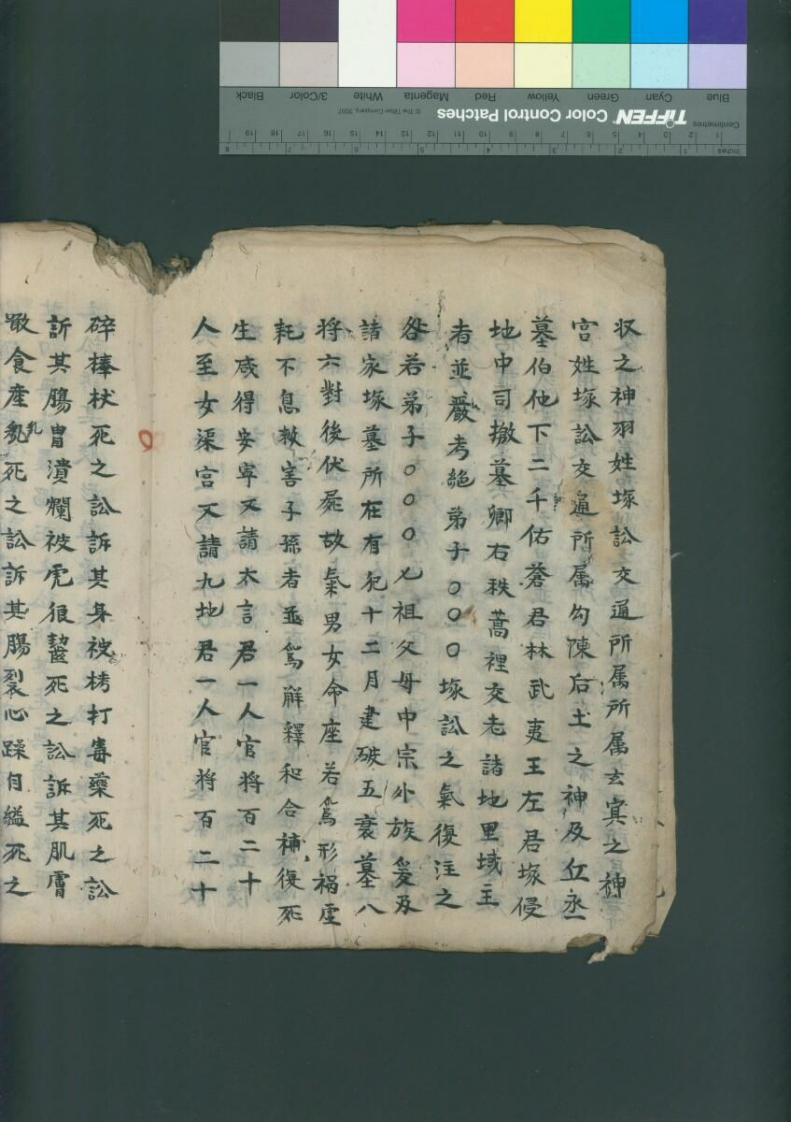 収之神羽姓塚訟交通所属所属玄冥之神
宫姓塚訟交通所属勾陳后土之神及丘丞
墓伯他下二千佑蒼君林武夷王左君塚侵
地中司撤墓卿右秩蒿裡交老諸地里域主
者並嚴考絶弟子〇〇〇塚訟之氣復注之
咎若弟子〇〇〇七祖父母中宗外族爰及
諸家塚墓所在有犯十二月建破五衰墓八
将六對後伏屍故氣男女命座若爲形禍虚
耗不息殺害子孫者並爲解釋和合補復死
生咸得安寧又請太言君一人官将百二十
人至女渠宫又請九地君一人官将百二十
碎棒杖死之訟訴其身被栲打毒藥死之訟
訴其腸胃潰爛被虎狼齧死之訟訴其肌膚
噉食産乳死之訟訴其腸裂心躁自縊死之
Blue
Cyan
Green
Yellow
Red
Magenta
White
3/Color
Black
TIFFEN Color Control Patches
© The Tiffen Company, 2007
Centimetres
Inches